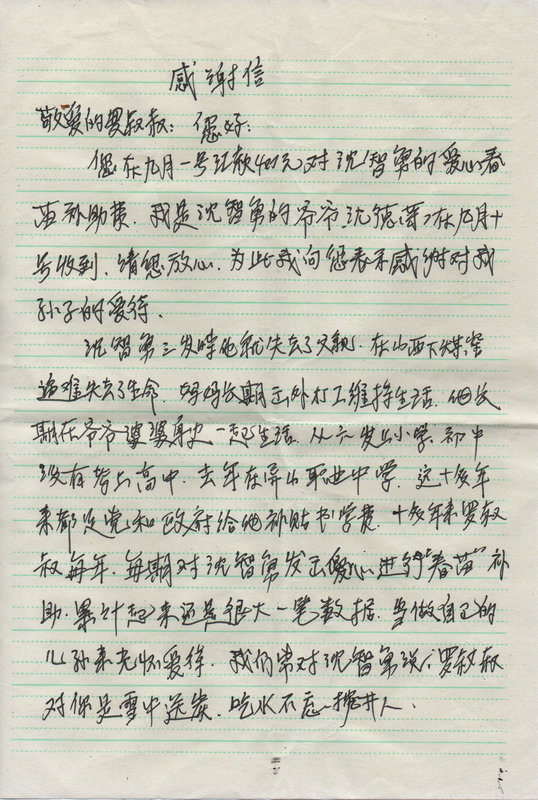 感谢信
敬爱的罗叔叔：您好：
您在九月一号汇款400元对沈智勇的爱心春
苗补助费，我是沈智勇的爷爷沈德 在九月十
号收到，请您放心，为此我向您表示感谢对我
孙子的爱待．
沈智勇三岁时他就失去了父亲，在山西下煤窑
遇难失去了生命，妈妈长期出外打工维持生活．他长
期在爷爷婆婆身边一起生活．从六岁上小学，初中
没有考上高中．去年在屏山职业中学．这十多年
来都是党和政府给他补贴书学费．十多年来罗叔
叔每年．每期对沈智勇发出爱心进行"春苗"补
助．累计起来还是很大一笔数据．当做自己的
儿孙来关怀爱待．我们常对沈智勇说：罗叔叔
对你是雪中送炭．吃水不忘挖井人．